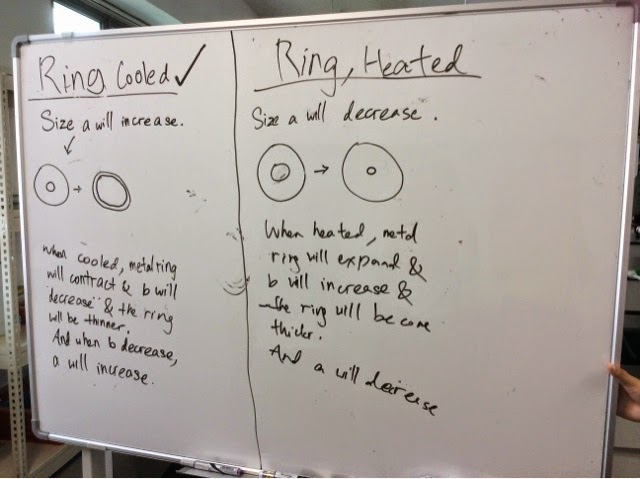 Ring Cooled ✓
Size a will increase.
When cooled, metal ring
will contract & b will
decrease & the ring
will be thinner.
And when b decrease,
a will increase.
Ring, Heated
Size a will decrease.
When heated, metal
ring will expand &
b will increase &
the ring will become
thicker.
And a will decrease